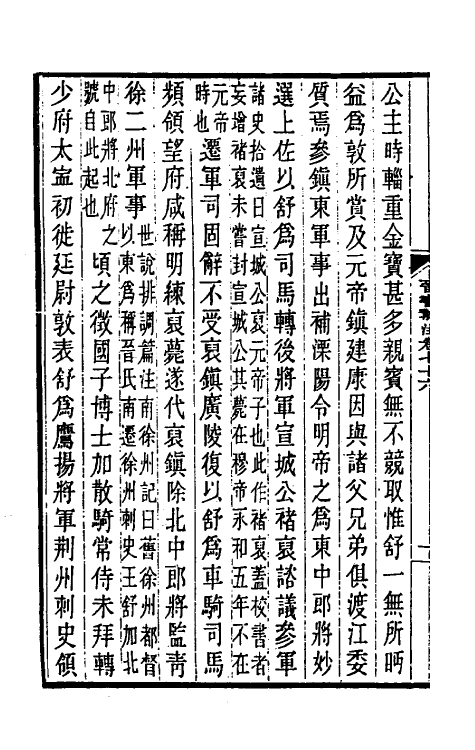 公主時輜重金寶甚多親賓無不競取惟舒一無所眄
益爲敦所賞及元帝鎮建康因與諸父兄弟俱渡江委
質焉參鎮東軍事出補溧陽令明帝之爲東中郎將妙
選上佐以舒爲司馬轉後將軍宣城公褚裒諮議參軍
諸史拾遺曰宣城公裒元帝子也此作褚裒蓋校書者
妄增褚裒未嘗封宣城公其薨在穆帝永和五年不在
元帝
時也
遷軍司固辭不受裒鎮廣陵復以舒爲車騎司馬
頻領望府咸稱明練裒薨遂代裒鎮除北中郎將監青
徐二州軍事
世說排調篇注南徐州記曰舊徐州都督
以東爲稱晉氏南遷徐州刺史王舒加北
中郎將北府之
號自此起也
頃之徵國子博士加散騎常侍未拜轉
少府太寧初徙廷尉敦表舒爲鷹揚將軍荊州刺史領
晉書斠注卷七十六